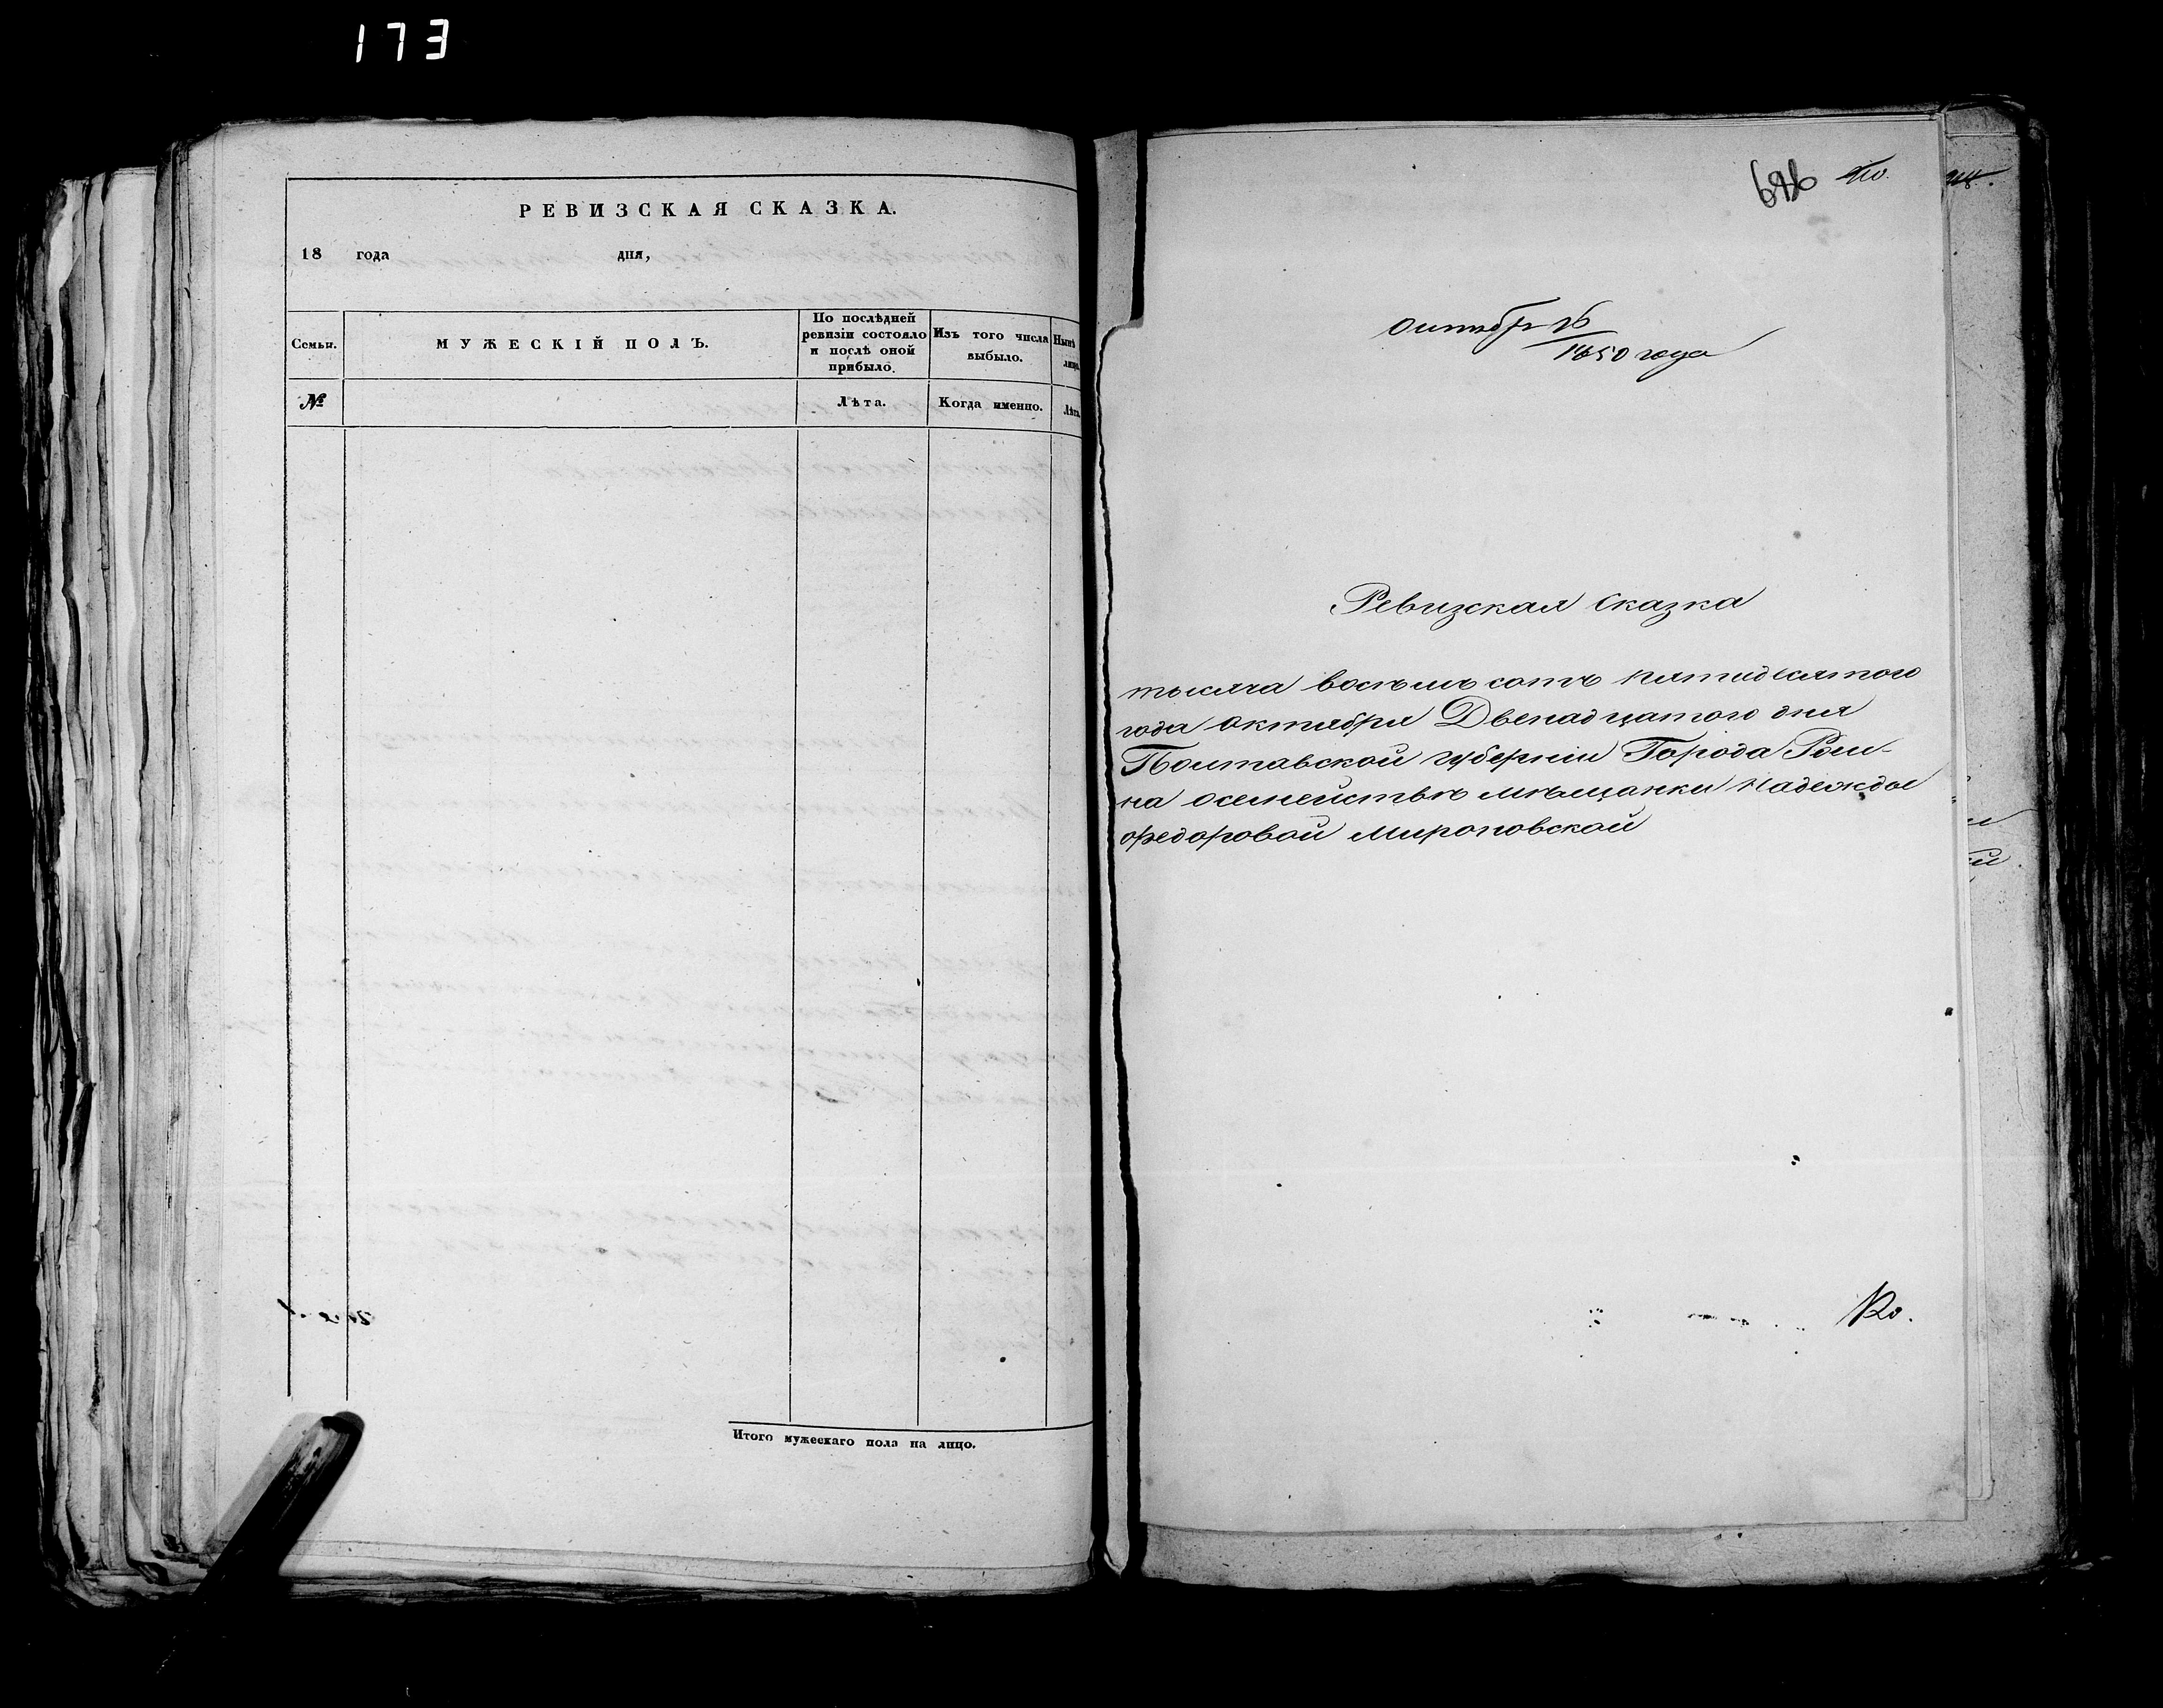 173
РЕВИЗСКАЯ СКАЗКА.
18 года дня,
Семьи.
МУЖЕСКІЙ ПОЛЪ.
По послѣдней
ревизіи состояло
и послѣ оной
прибыло.
Изъ того числа
выбыло.
Нынѣ
лицо
№
Лѣта.
Когда именно.
Лѣта
Итого мужескаго пола на лицо.
октября
1850 года
Ревизская Сказка
тысяча восемь сотъ пятидесятого
года октября Двенадцатого дня
Полтавской губерніи Города Ром-
на осемействѣ мѣщанки Надежды
федоровой Мироновской